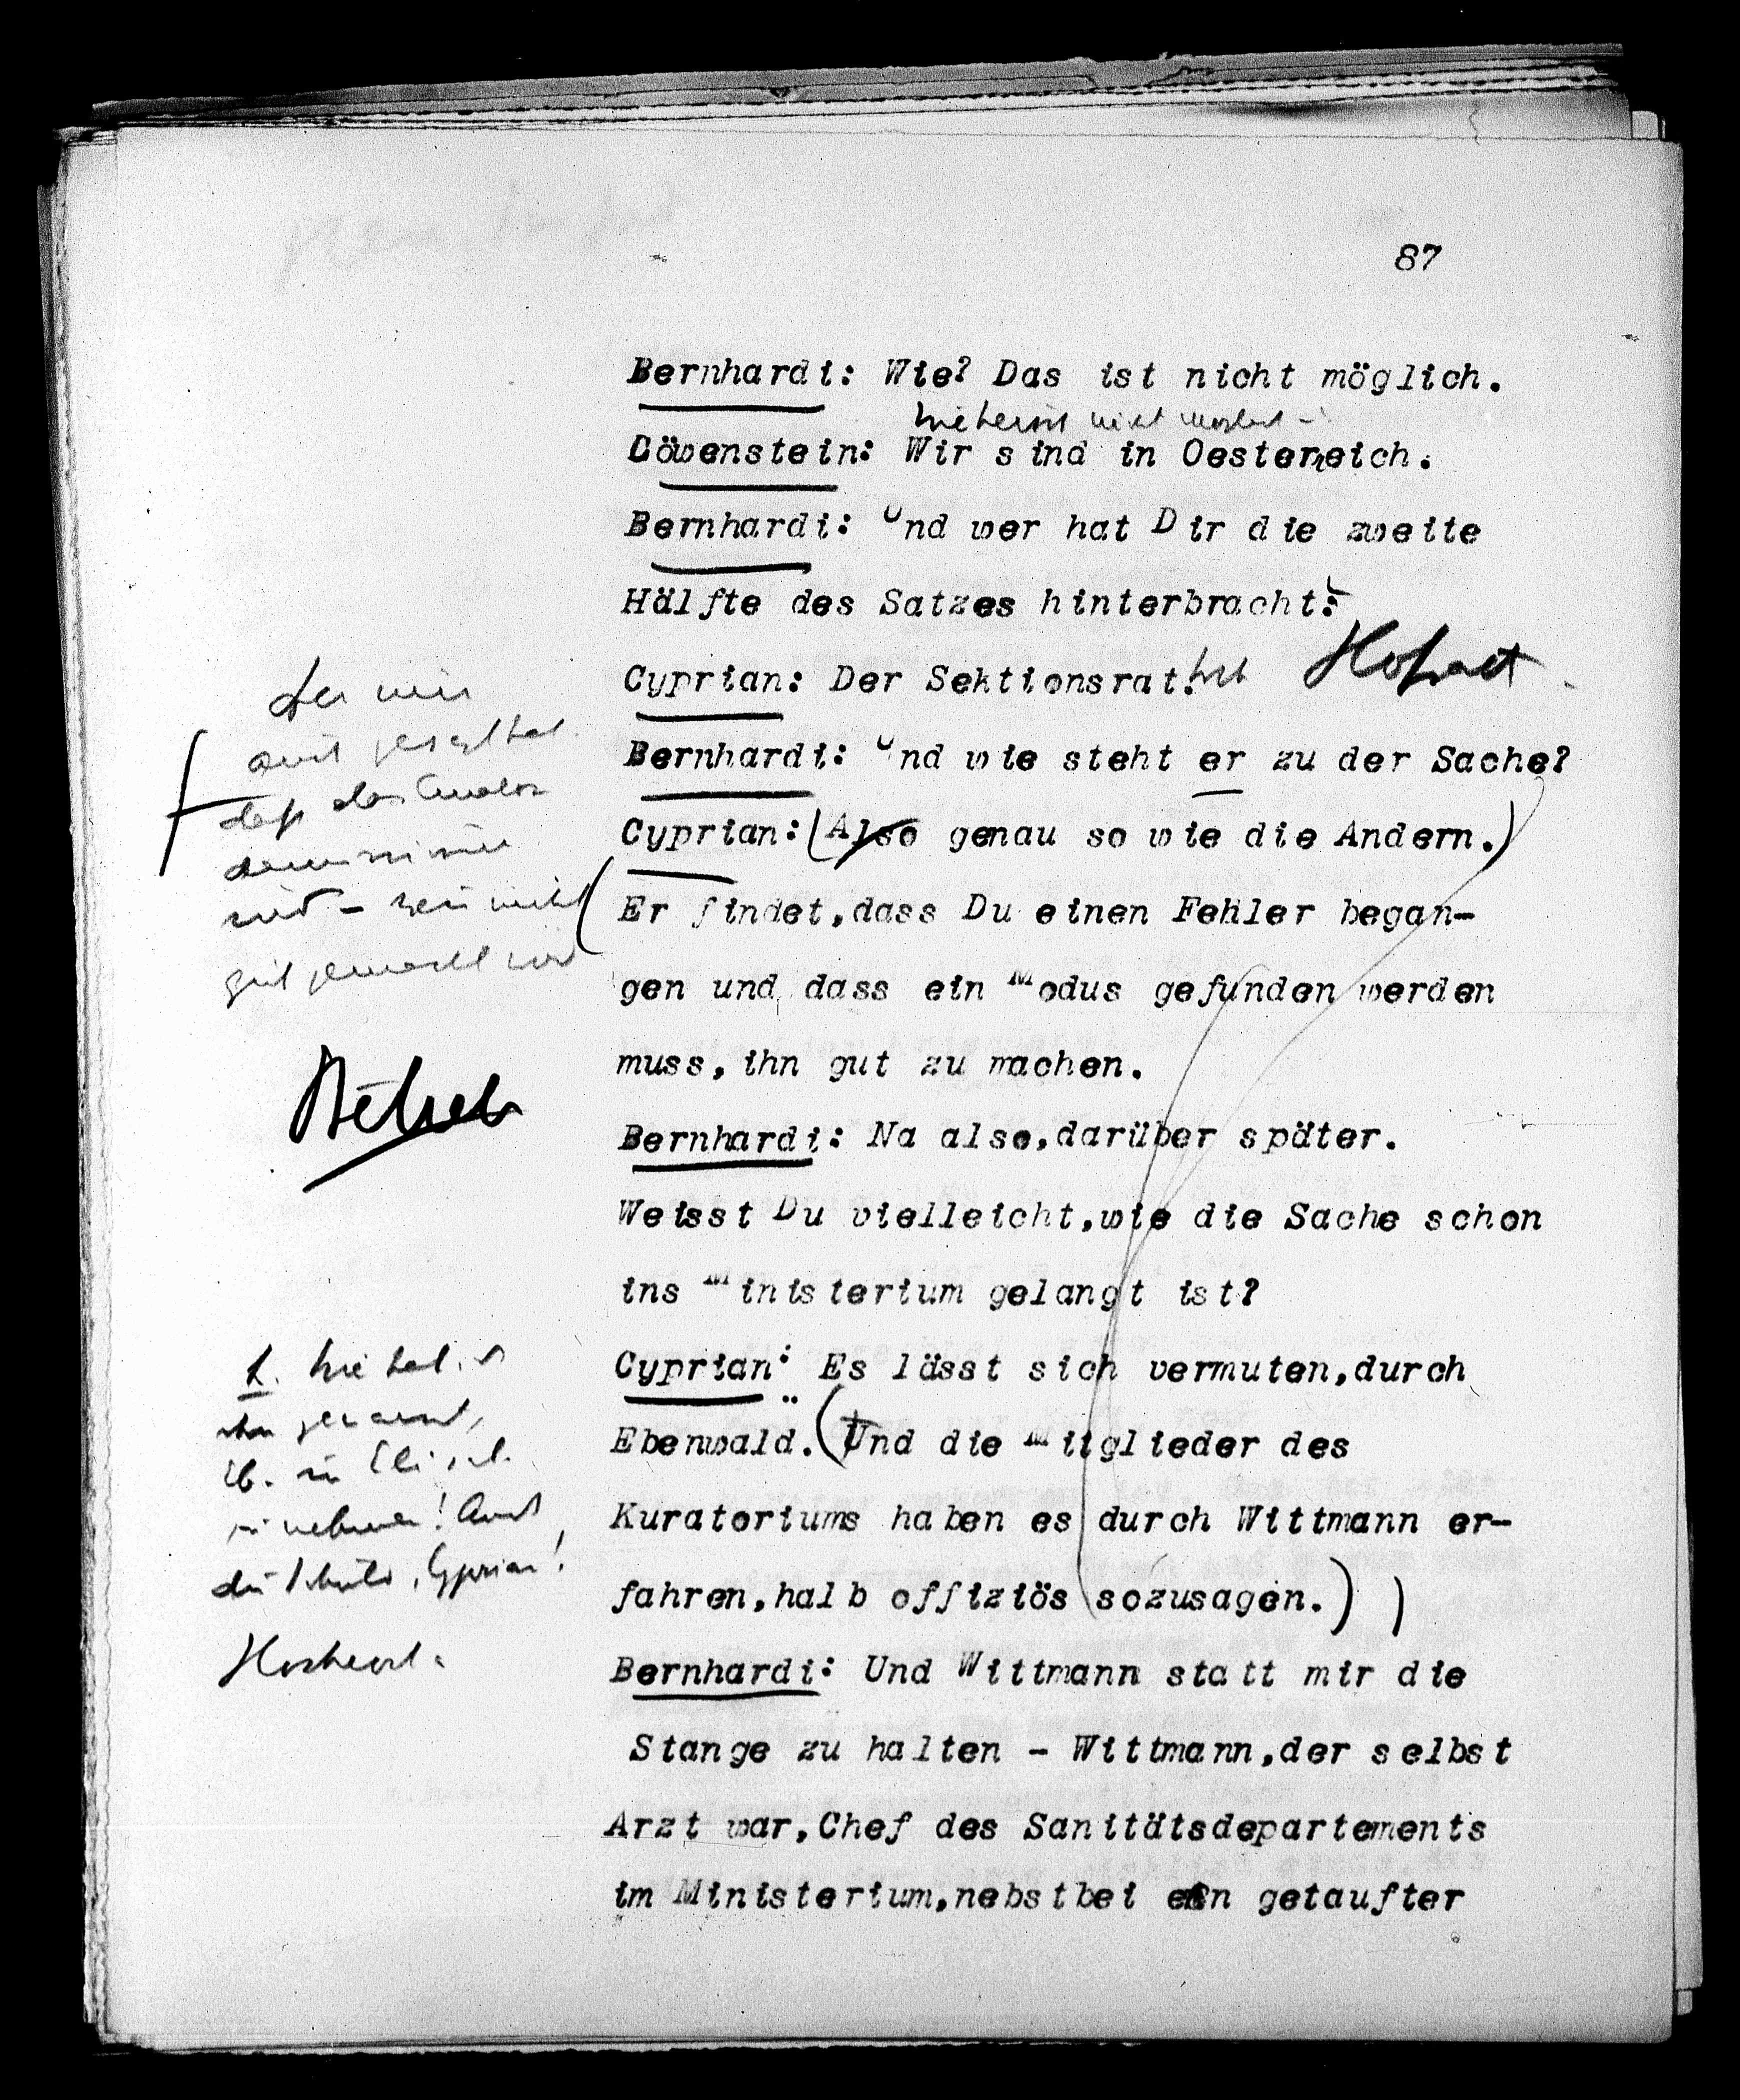 87
Bernhardi: Wie? Das ist nicht möglich.
nicht
Löwenstein: Wir sind in Oesterreich.
Bernhardi: Und wer hat Dir die zweite
Hälfte des Satzes hinterbracht?
Cyprian: Der Sektionsrat. Hofrat
Bernhardi: Und wie steht er zu der Sache?
Cyprian: (Also genau so wie die Andern.)
Er findet,dass Du einen Fehler began-
gen und dass ein Modus gefunden werden
muss,ihn gut zu machen.
Bernhardi: Na also,darüber später.
Weisst Du vielleicht,wie die Sache schon
ins Ministerium gelangt ist?
Cyprian: Es lässt sich vermuten,durch
Ebenwald.(Und die Mitglieder des
Kuratoriums haben es durch Wittmann er-
fahren,halb offiziös sozusagen.))
Bernhardi: Und Wittmann statt mir die
Stange zu halten - Wittmann,der selbst
Arzt war,Chef des Sanitätsdepartements
im Ministerium,nebstbei ein getaufter
der mir
auch gesagt hat
dass das
wird -
gut gemacht wird
L.
ihn gewarnt,
Cyprian!